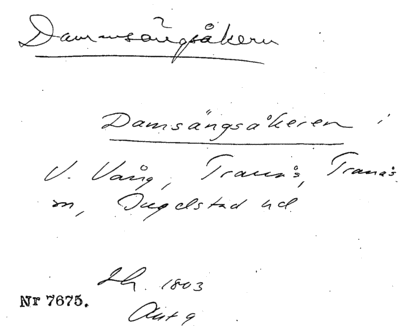 Dammsångsåkern
Damsängsåkeren i
V. Vång, Tranås, Tranås
sn, Ingelstad hd.
Sk. 1803
Akt 9
Nr 7675.